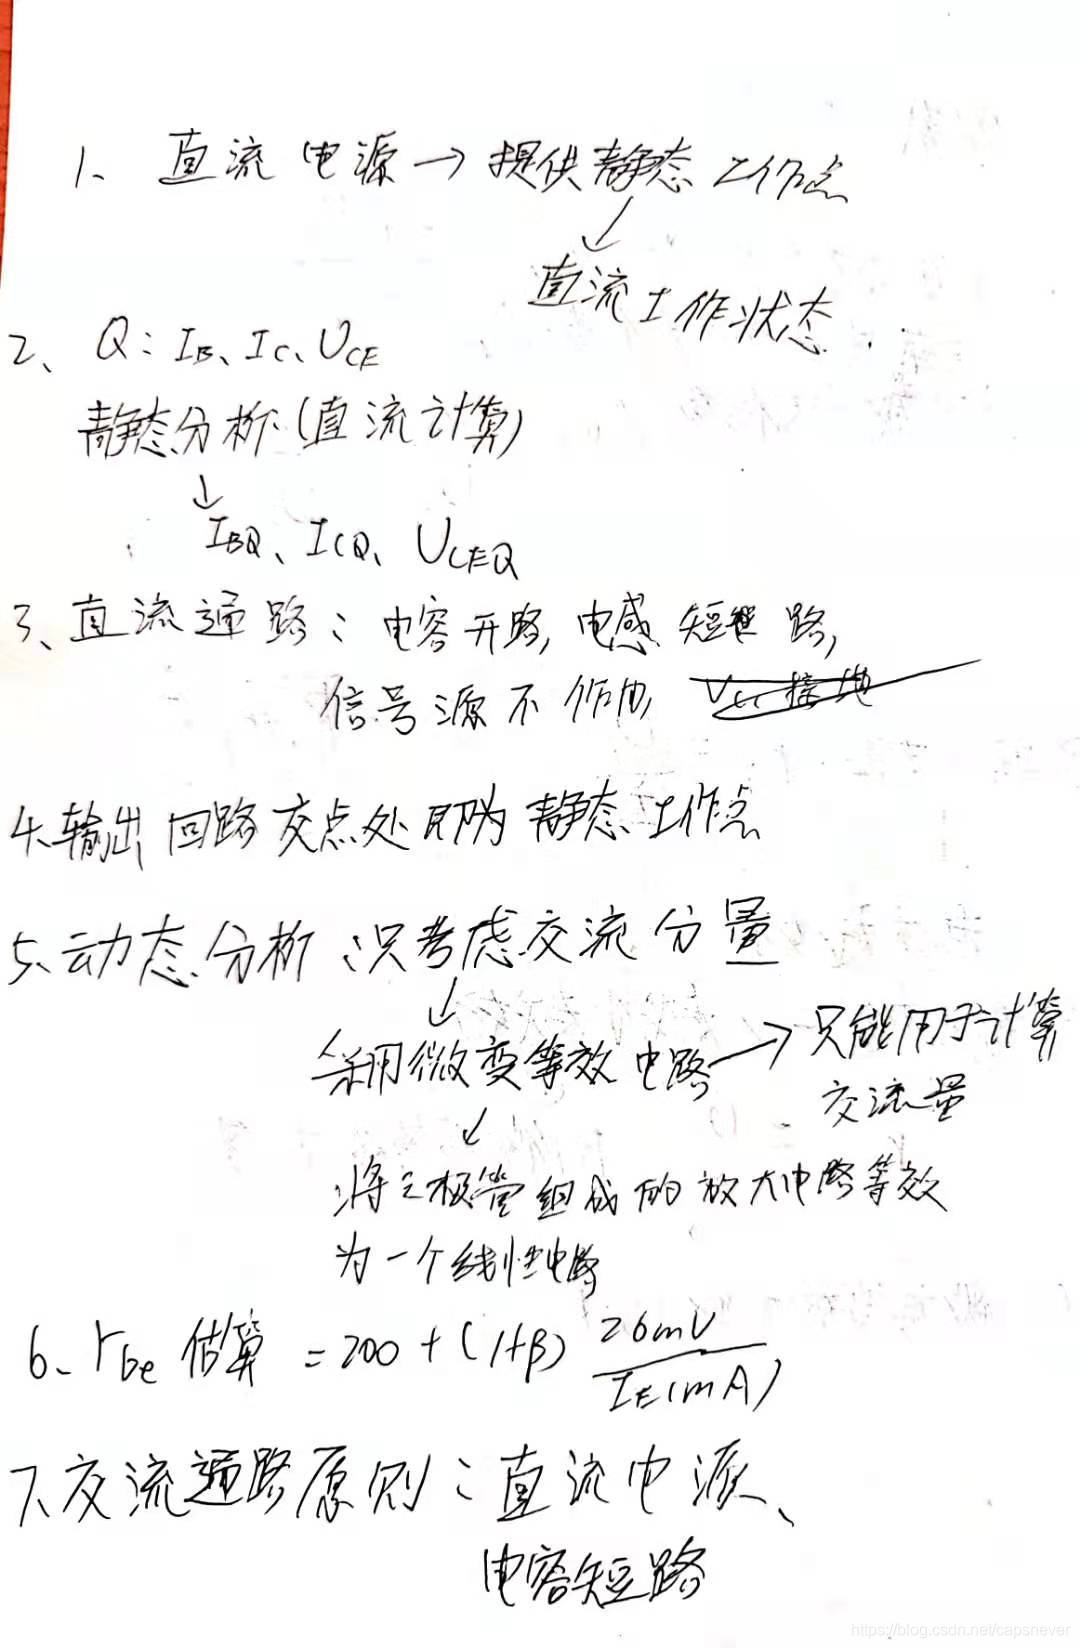 1、直流电源→提供静态工作点
↓
直流工作状态
2、Q：IB、IC、UCE
静态分析(直流计算)
↓
IBQ、ICQ、UCEQ
3、直流通路：电容开路,电感短路,
信号源不作用, Vcc接地
4、输出回路交点处即为静态工作点
5、动态分析：只考虑交流分量
↓
采用微变等效电路→只能用于计算
交流量
↓
将三极管组成的放大电路等效
为一个线性电路
6、rbe估算 =200+(1+β) 26mV/IE(mA)
7、交流通路原则：直流电源、
电容短路
https://blog.csdn.net/capsnever